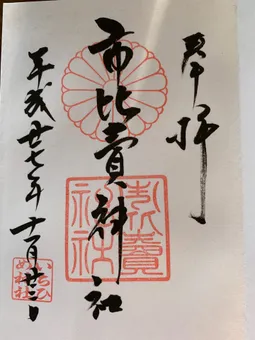 奉拝
市比賣神社
平成廿七年十一月廿三日
市比賣
神社
いちひめ神社